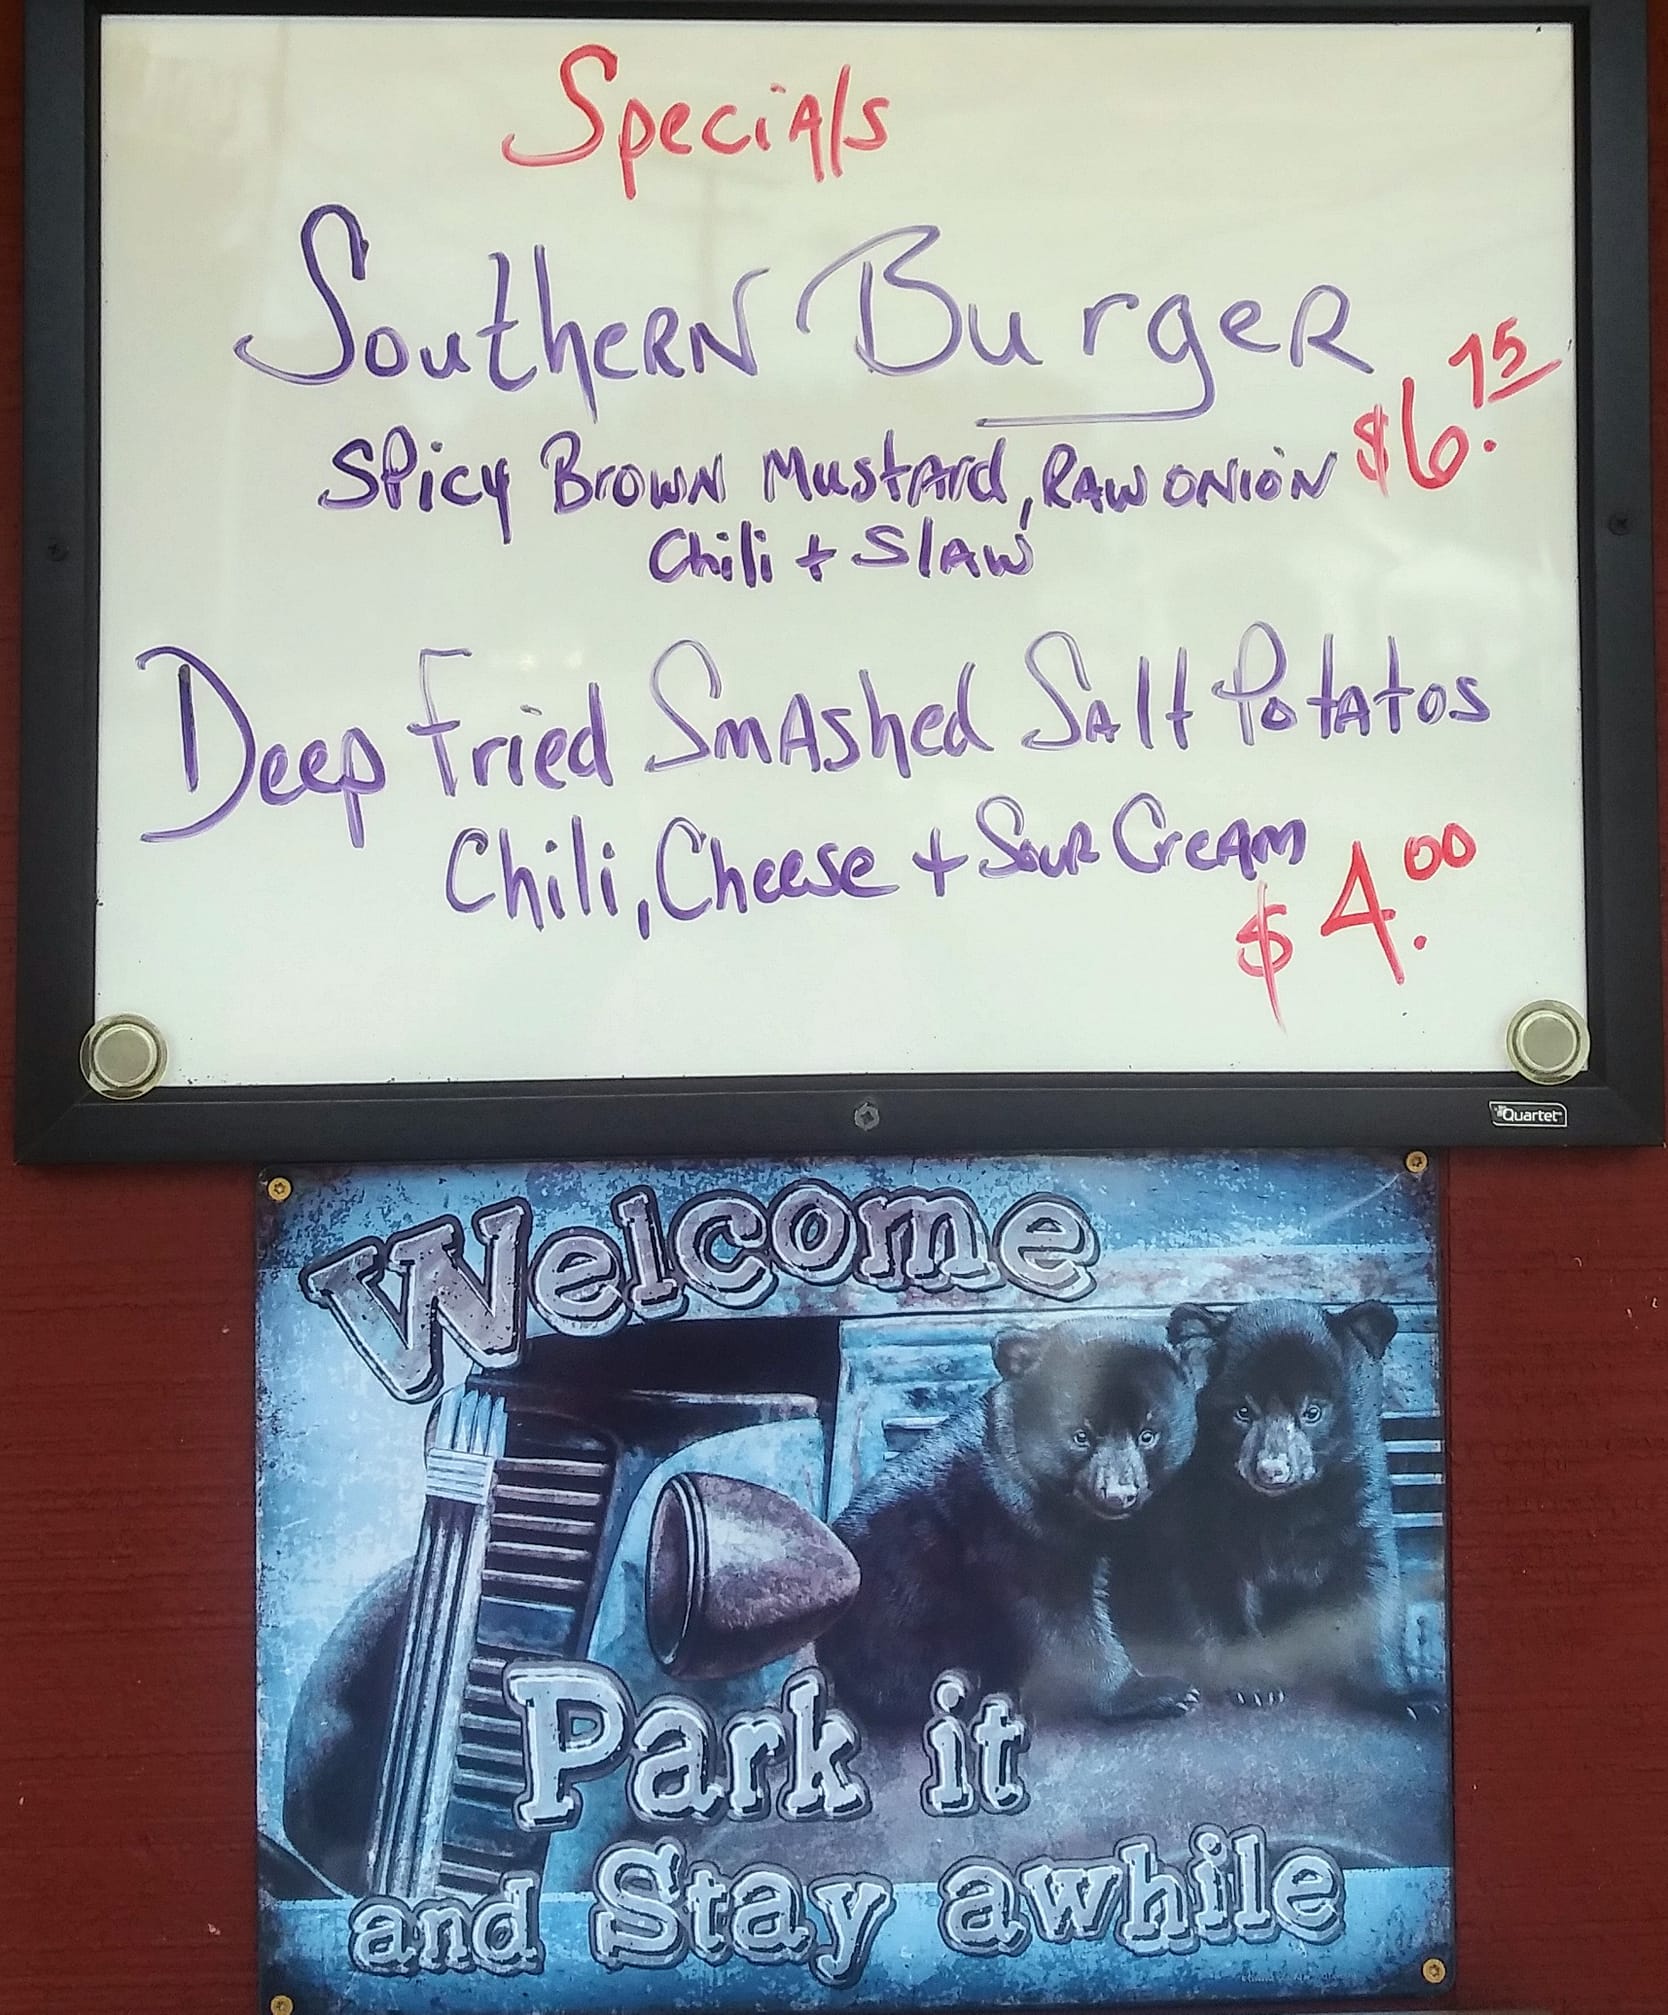 Specials
Southern Burger
Spicy Brown Mustard, Raw Onion $6.75
Chili + Slaw
Deep Fried Smashed Salt Potatos
Chili, Cheese + Sour Cream
$4.00
Quartet
Welcome
Park it
and Stay awhile